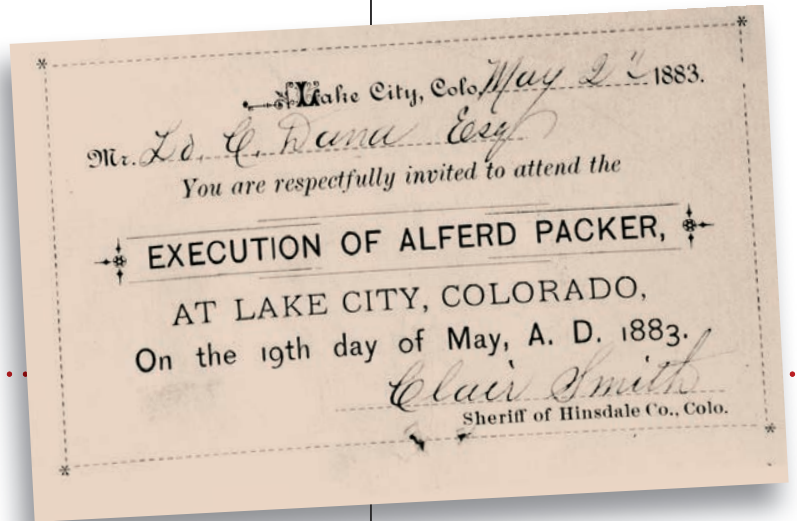 Lake City, Colo. May 2d 1883.
Mr. Ed. C. Dana Esq
You are respectfully invited to attend the
EXECUTION OF ALFERD PACKER,
AT LAKE CITY, COLORADO,
On the 19th day of May, A. D. 1883.
Clair Smith
Sheriff of Hinsdale Co., Colo.